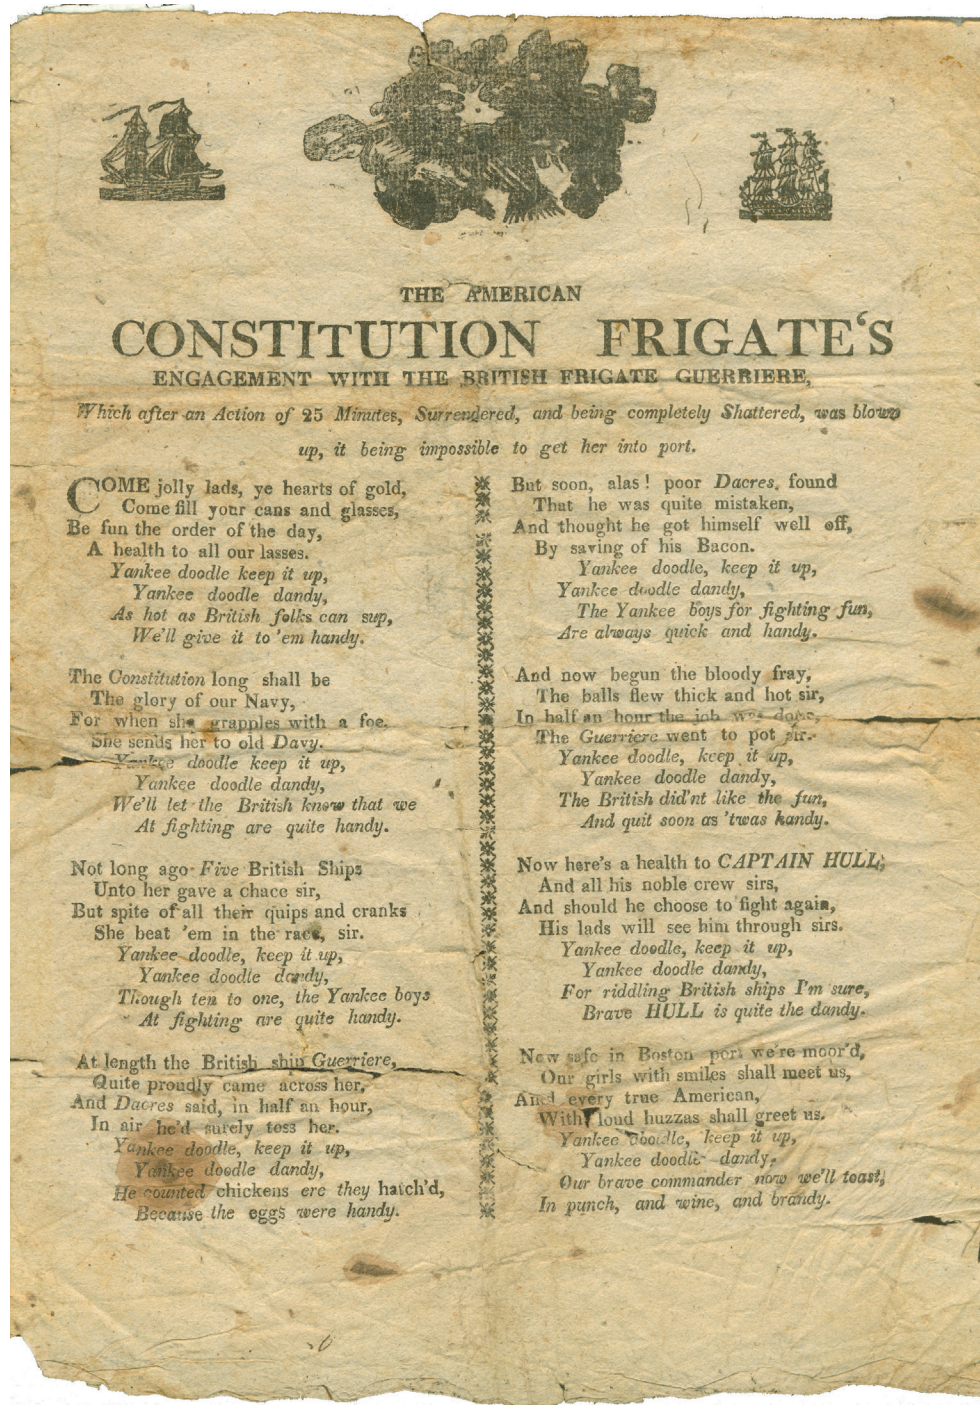 THE AMERICAN
CONSTITUTION FRIGATE'S
ENGAGEMENT WITH THE BRITISH FRIGATE GUERRIERE,
Which after an Action of 25 Minutes, Surrendered, and being completely Shattered, was blown
up, it being impossible to get her into port.
COME jolly lads, ye hearts of gold,
Come fill your cans and glasses,
Be fun the order of the day,
A health to all our lasses.
Yankee doodle keep it up,
Yankee doodle dandy,
As hot as British folks can sup,
We'll give it to 'em handy.
The Constitution long shall be
The glory of our Navy,
For when she grapples with a foe.
She sends her to old Davy.
Yankee doodle keep it up,
Yankee doodle dandy,
We'll let the British know that we
At fighting are quite handy.
Not long ago Five British Ships
Unto her gave a chace sir,
But spite of all their quips and cranks
She beat 'em in the race, sir.
Yankee doodle, keep it up,
Yankee doodle dandy,
Though ten to one, the Yankee boys
At fighting are quite handy.
At length the British ship Guerriere,
Quite proudly came across her,
And Dacres said, in half an hour,
In air he'd surely toss her.
Yankee doodle, keep it up,
Yankee doodle dandy,
He counted chickens ere they hatch'd,
Because the eggs were handy.
But soon, alas! poor Dacres, found
That he was quite mistaken,
And thought he got himself well off,
By saving of his Bacon.
Yankee doodle, keep it up,
Yankee doodle dandy,
The Yankee boys for fighting fun,
Are always quick and handy.
And now begun the bloody fray,
The balls flew thick and hot sir,
In half an hour the job was done,
The Guerriere went to pot sir.
Yankee doodle, keep it up,
Yankee doodle dandy,
The British did'nt like the fun,
And quit soon as 'twas handy.
Now here's a health to CAPTAIN HULL,
And all his noble crew sirs,
And should he choose to fight again,
His lads will see him through sirs.
Yankee doodle, keep it up,
Yankee doodle dandy,
For riddling British ships I'm sure,
Brave HULL is quite the dandy.
Now safe in Boston port we're moor'd,
Our girls with smiles shall meet us,
And every true American,
With loud huzzas shall greet us.
Yankee doodle, keep it up,
Yankee doodle dandy,
Our brave commander now we'll toast,
In punch, and wine, and brandy.